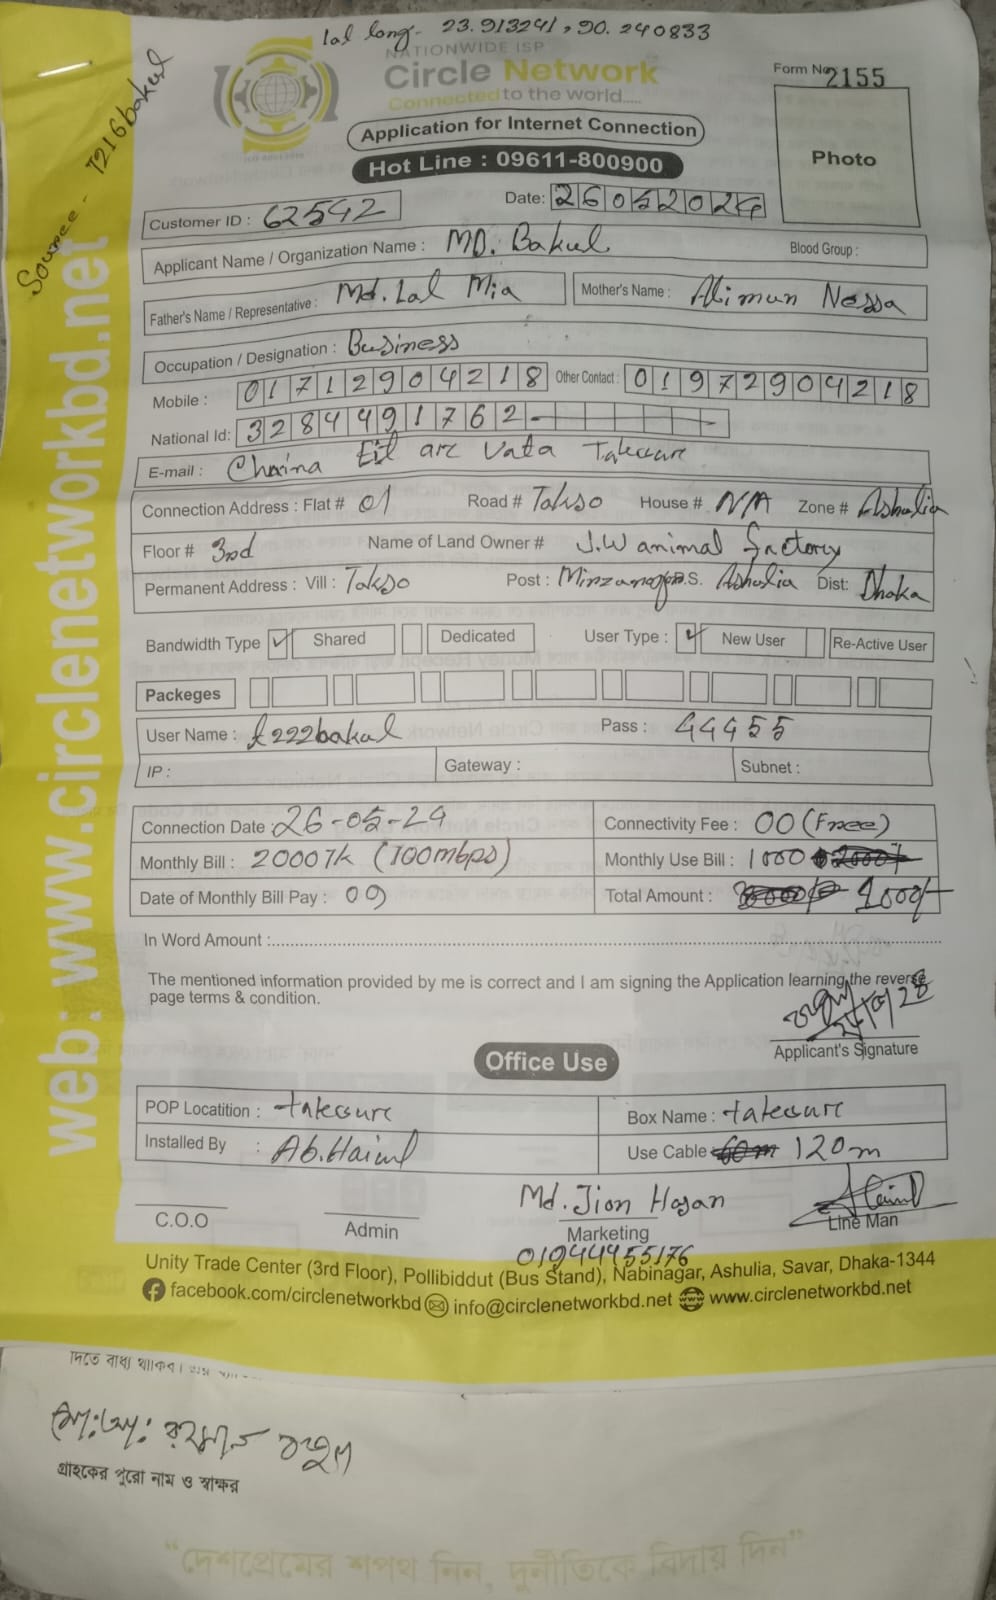 lal long- 23.913241, 90.240833
Source - T216bakul
NATIONWIDE ISP
Circle Network
Connected to the world.....
Form No 2155
Application for Internet Connection
Photo
Hot Line : 09611-800900
Customer ID : 62542
Date: 26052024
Applicant Name / Organization Name : MD. Bakul
Blood Group :
Father's Name / Representative : Md. Lal Mia
Mother's Name : Alimun Nessa
Occupation / Designation : Business
Mobile : 01712904218 Other Contact : 01972904218
National Id: 3284491762
E-mail : Chaina Eit arc Vata Takecure
Connection Address : Flat # 01 Road # Takso House # N/A Zone # Ashulia
Floor # 3rd Name of Land Owner # J.W animal factory
Permanent Address : Vill : Takso Post : P.S. Ashulia Dist: Dhaka
Bandwidth Type Shared Dedicated User Type : New User Re-Active User
Packeges
User Name : t222bakul Pass : 44455
IP : Gateway : Subnet :
Connection Date : 26-05-24 Connectivity Fee : 00 (Free)
Monthly Bill : 2000Tk (100mbps) Monthly Use Bill : 1000
Date of Monthly Bill Pay : 09 Total Amount : 1000/-
In Word Amount :
The mentioned information provided by me is correct and I am signing the Application learning the reverse
page terms & condition.
Applicant's Signature
Office Use
POP Locatition : takecure Box Name : takecure
Installed By : Ab. Haiul Use Cable 120m
C.O.O
Admin
Md. Jion Hosan
Marketing
01944455176
Line Man
Unity Trade Center (3rd Floor), Pollibiddut (Bus Stand), Nabinagar, Ashulia, Savar, Dhaka-1344
facebook.com/circlenetworkbd info@circlenetworkbd.net www.circlenetworkbd.net
web: www.circlenetworkbd.net
দিতে বাধ্য থাকিব।
মো: আ: রহমান বকুল
গ্রাহকের পুরো নাম ও স্বাক্ষর
“দেশপ্রেমের শপথ নিন, দুর্নীতিকে বিদায় দিন”